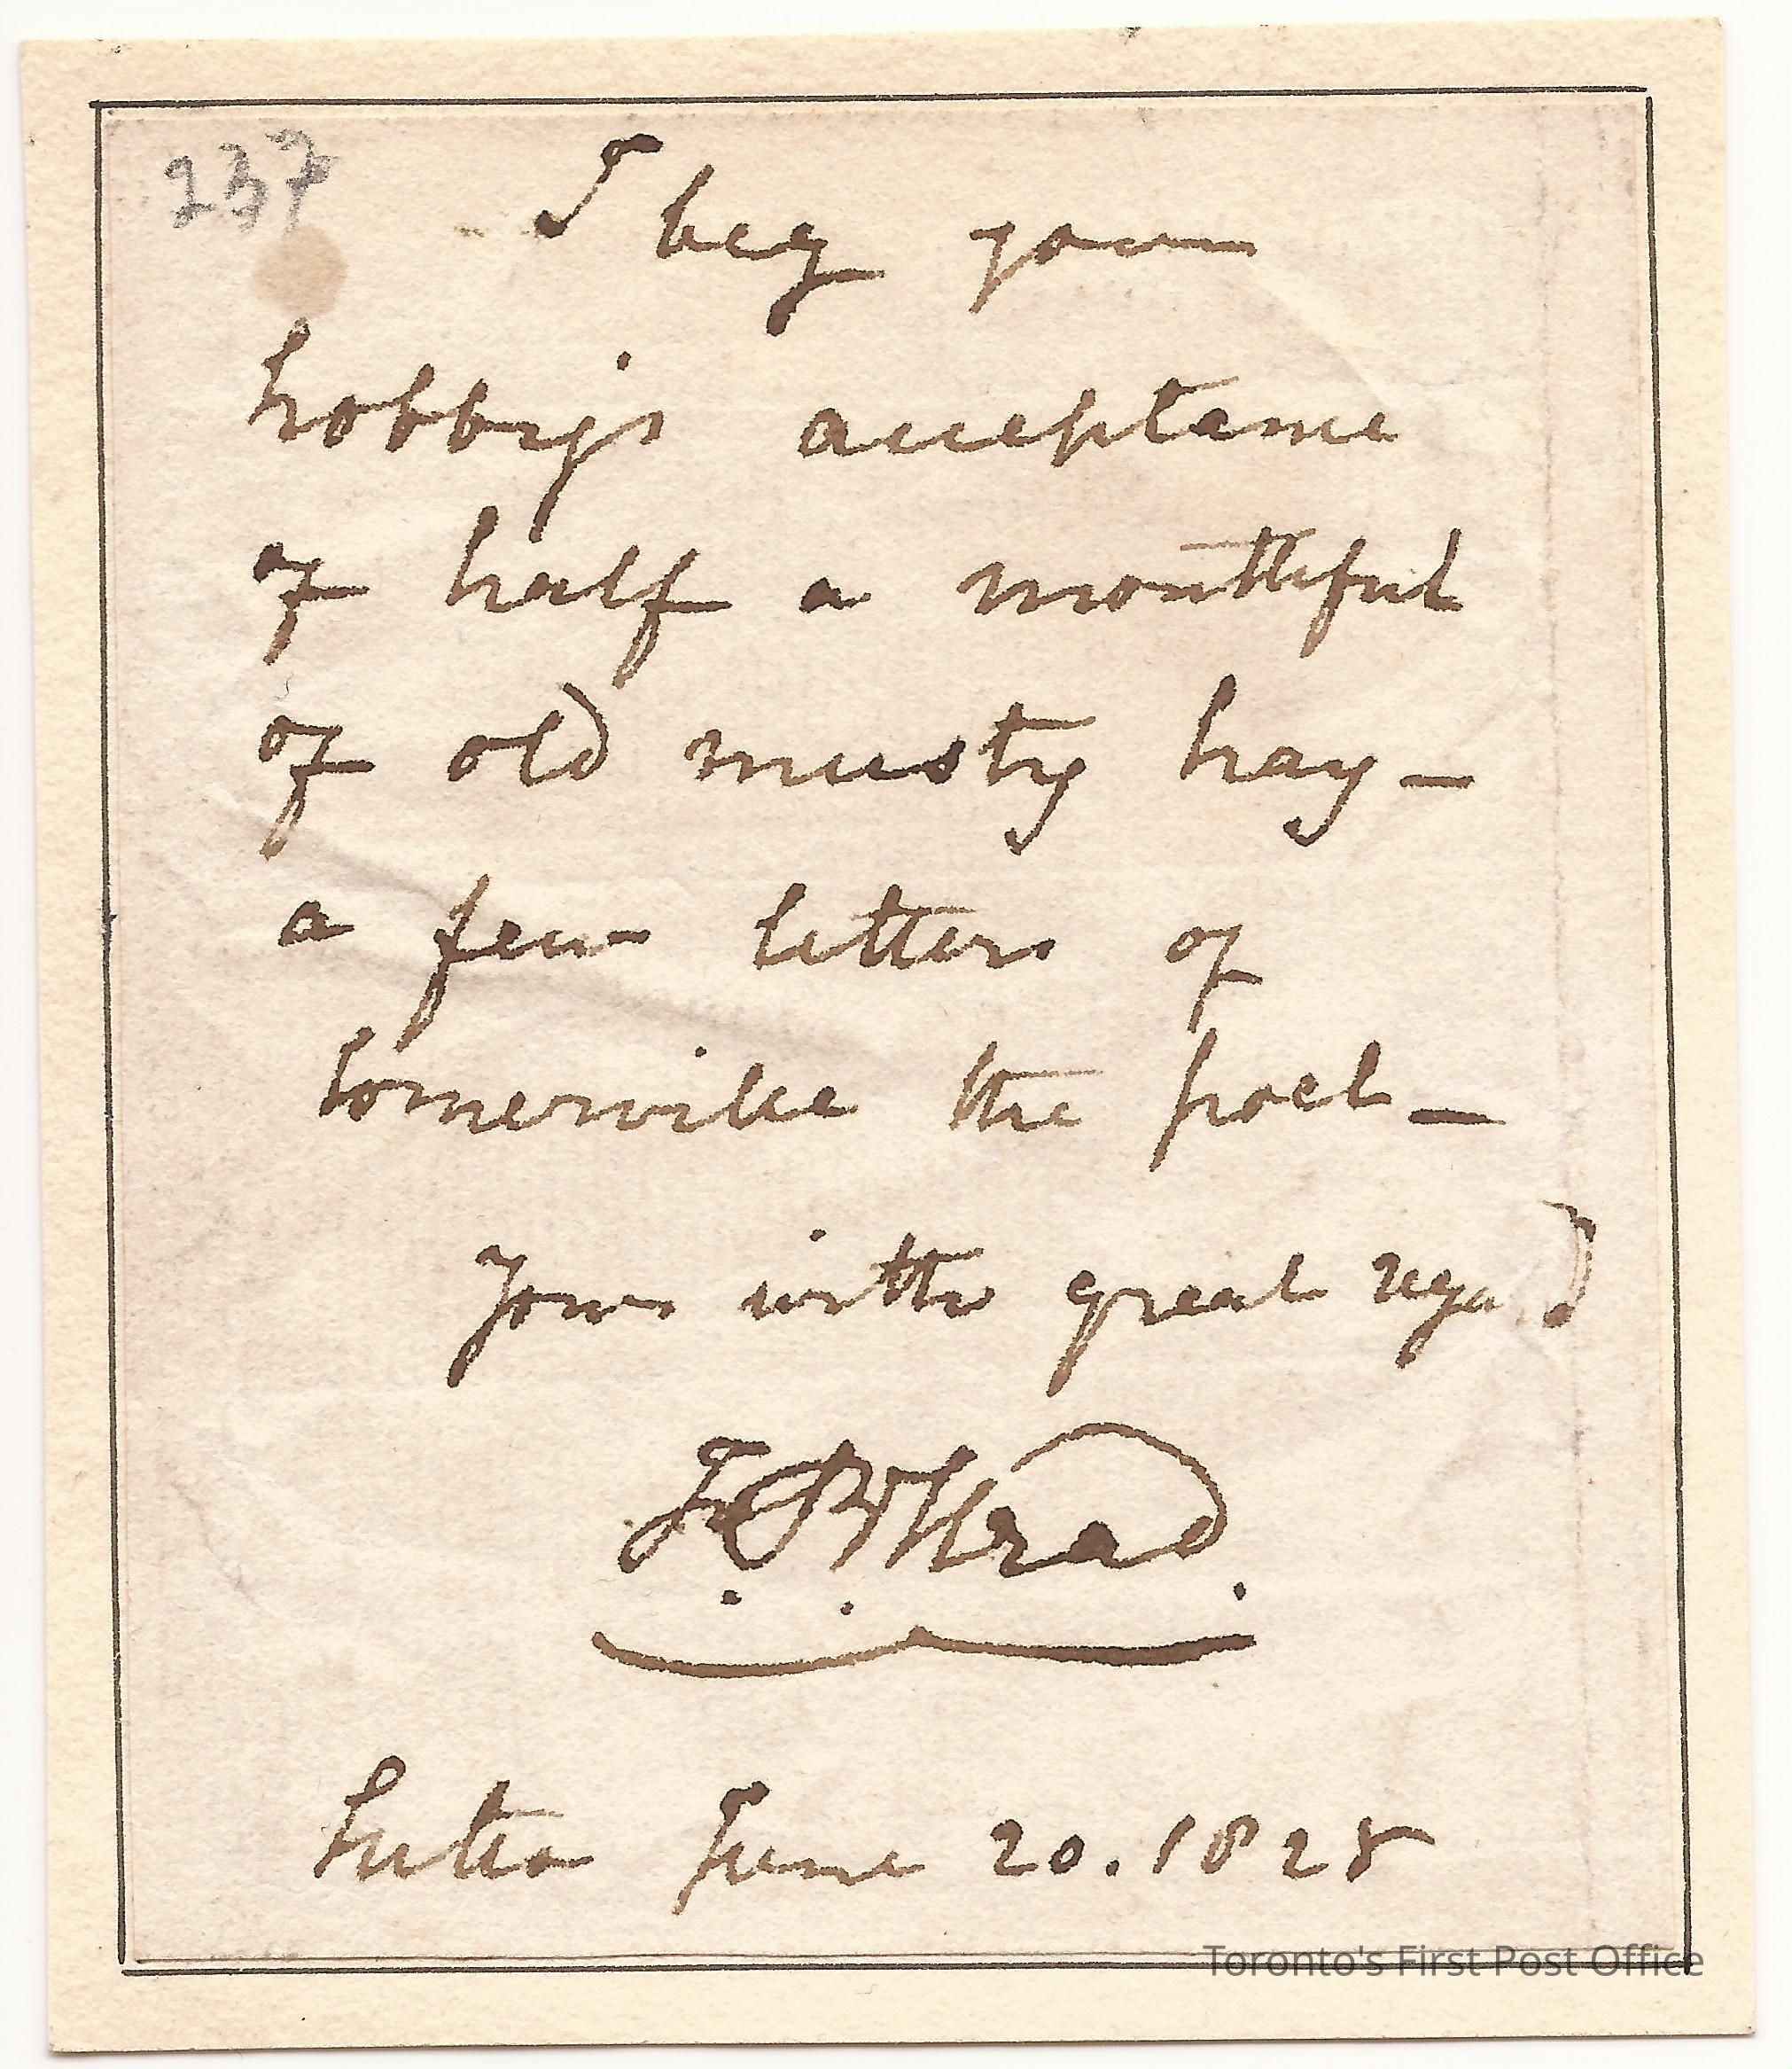 237
I beg your
hobby's acceptance
of half a mouthful
of old musty hay —
a few letters of
Somerville the poet —
Yours with great regard
F B Head
June 20. 1828
Toronto's First Post Office